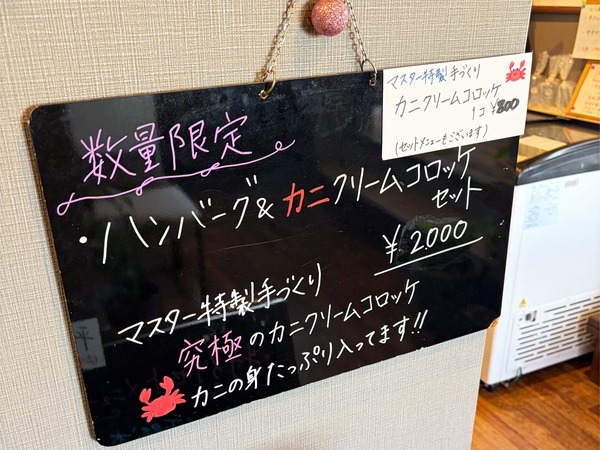 数量限定
・ハンバーグ&カニクリームコロッケ
セット
¥2000
マスター特製手づくり
究極のカニクリームコロッケ
カニの身たっぷり入ってます!!
マスター特製手づくり
カニクリームコロッケ
1コ ¥800
(セットメニューもございます)